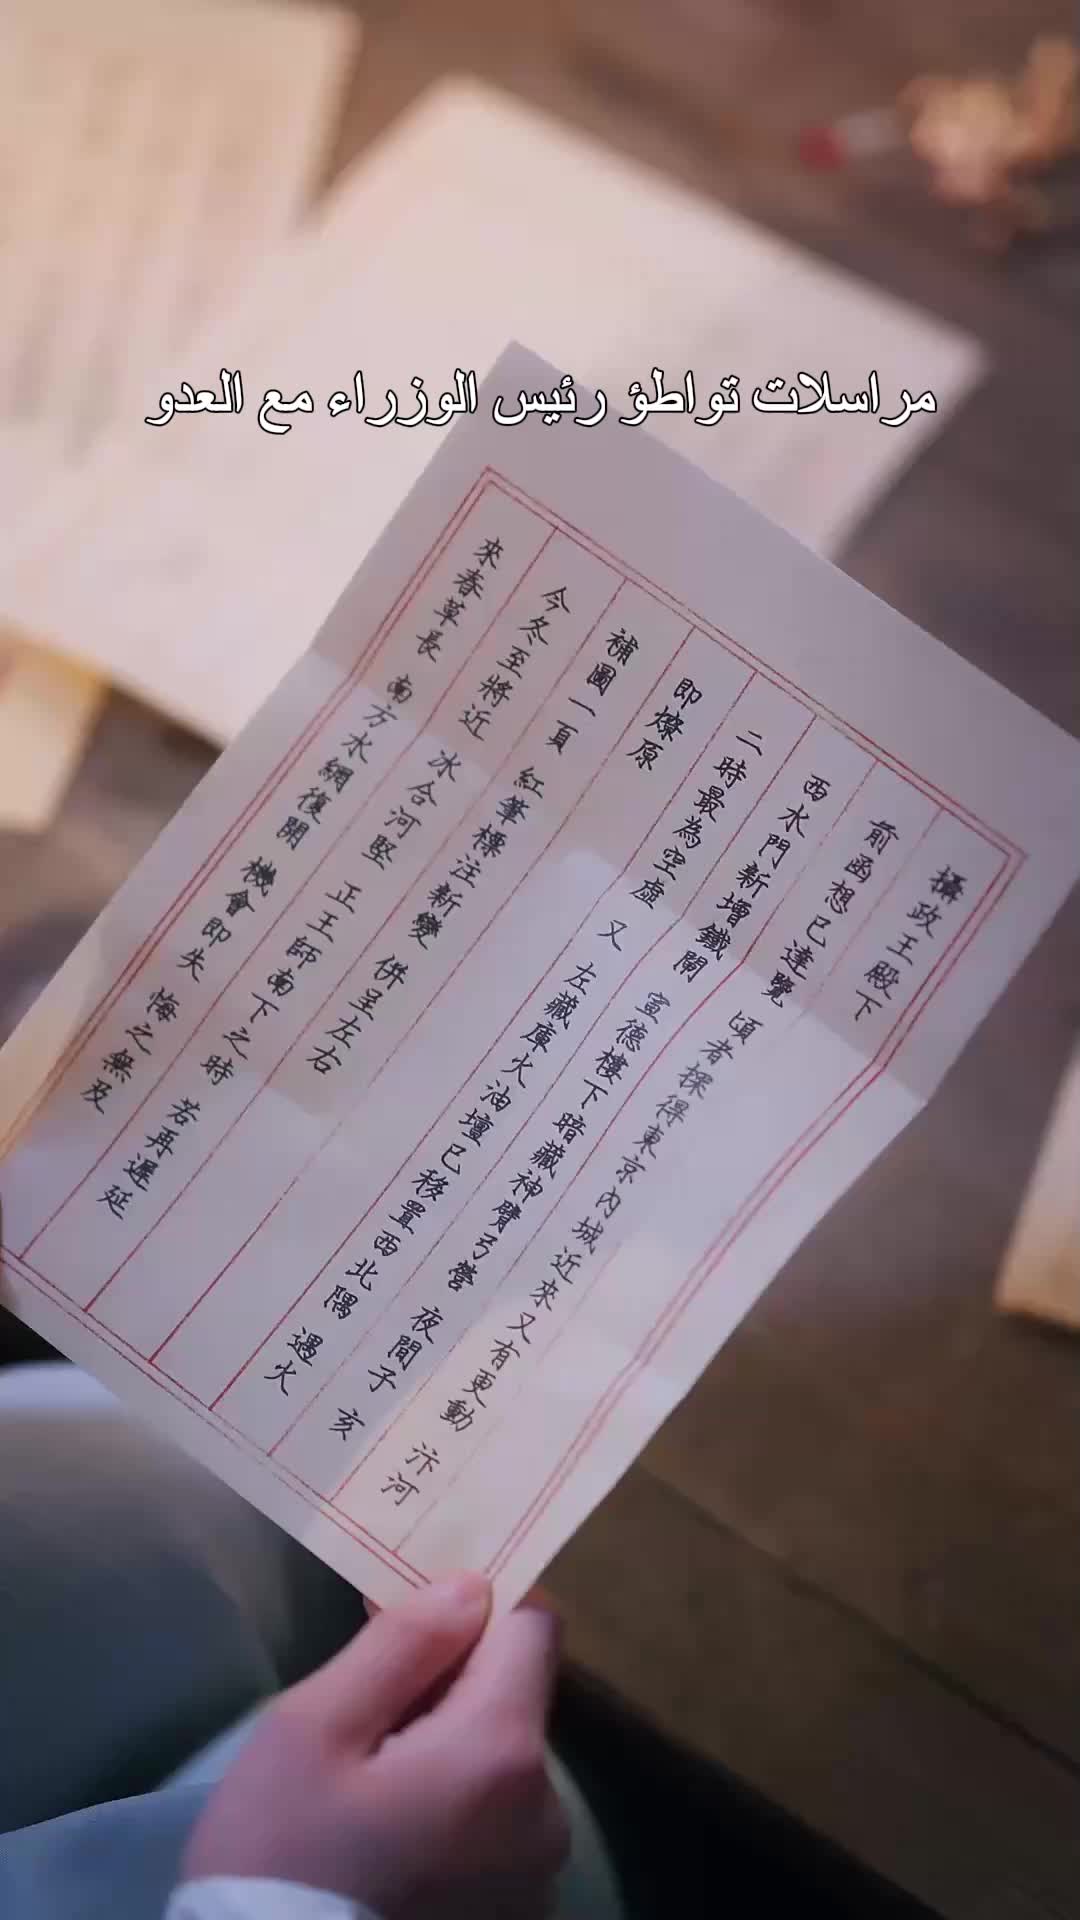 مراسلات تواطؤ رئيس الوزراء مع العدو
攝政王殿下
前函想已達覽 頃者探得東京內城近來又有更動 汴河
西水門新增鐵閘 宣德樓下暗藏神臂弓營 夜間子 亥
二時最為空虛 又 左藏庫火油壇已移置西北隅 遇火
即燎原
補圖一頁 紅筆標注新變 併呈左右
今冬至將近 冰合河堅 正王師南下之時 若再遲延
來春草長 南方水網復開 機會即失 悔之無及